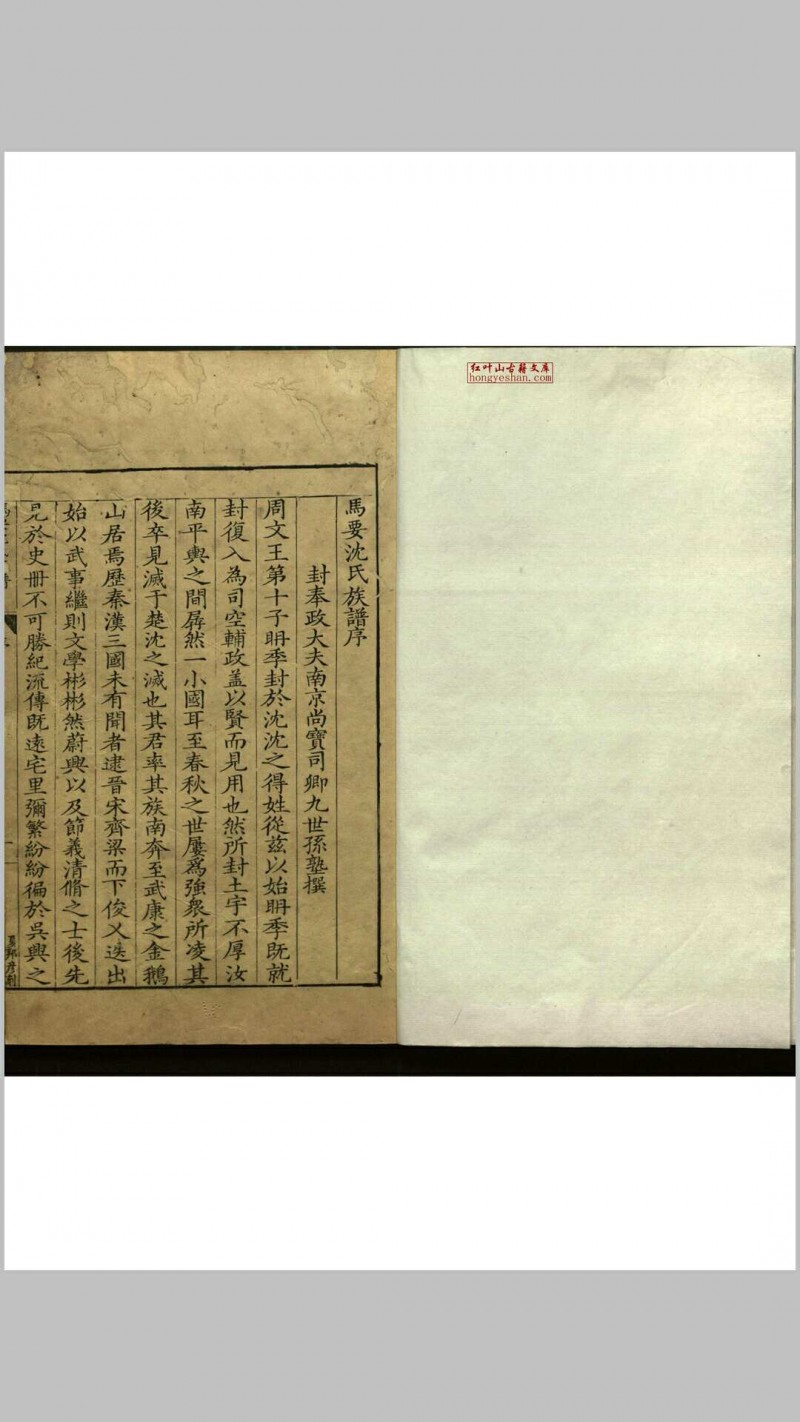 红叶山古籍文库
hongyeshan.com
馬要沈氏族譜序
封奉政大夫南京尚寶司卿九世孫塾撰
周文王第十子𣅔季封於沈沈之得姓從茲以始𣅔季既就
封復入為司空輔政盖以賢而見用也然所封土宇不厚汝
南平輿之間孱然一小國耳至春秋之世屢爲強衆所凌其
後卒見滅于楚沈之滅也其君率其族南奔至武康之金鵝
山居焉歷秦漢三國未有聞者逮晉宋齊梁而下俊乂迭出
始以武事繼則文學彬彬然蔚興以及節義清脩之士後先
見於史冊不可勝紀流傳既遠宅里彌繁紛紛徧於吳興之